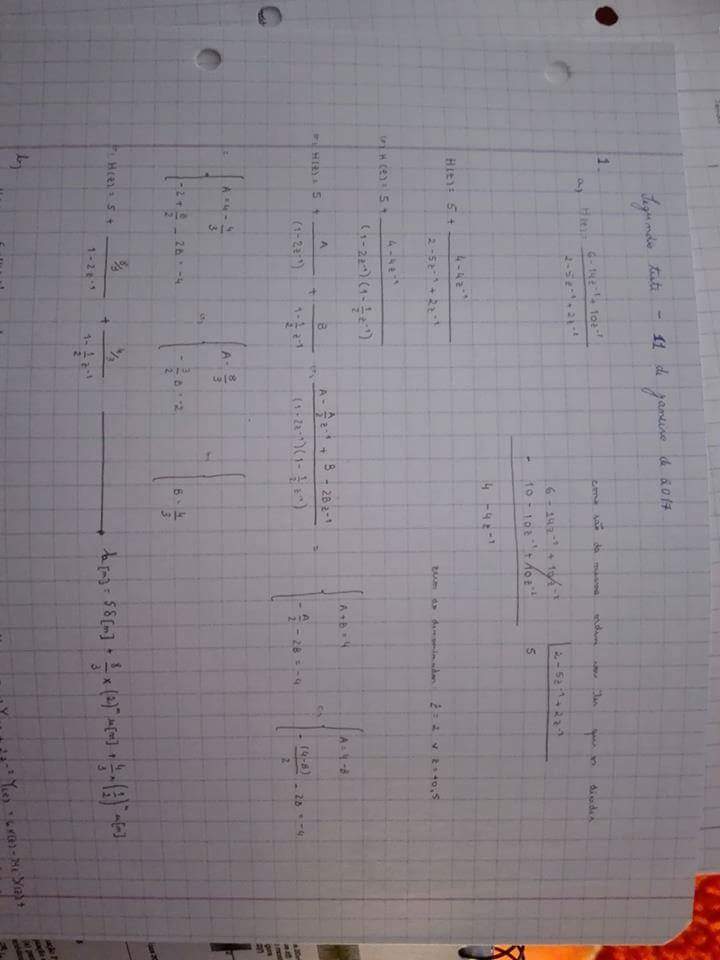 Segundo teste - 11 de janeiro de 2017
1.
a) H(z) = (6 - 14z⁻¹ + 10z⁻²) / (2 - 5z⁻¹ + 2z⁻²)
como são da mesma ordem que dividir
6 - 14z⁻¹ + 10z⁻² | 2 - 5z⁻¹ + 2z⁻²
- 10 - 10z⁻¹ + 10z⁻² 5
4 - 4z⁻¹
H(z) = 5 + (4 - 4z⁻¹) / (2 - 5z⁻¹ + 2z⁻²)
zeros do denominador: z = 2 ∨ z = +0,5
(=) H(z) = 5 + (4 - 4z⁻¹) / ((1 - 2z⁻¹)(1 - ½z⁻¹))
(=) H(z) = 5 + A / (1 - 2z⁻¹) + B / (1 - ½z⁻¹) (=) (A - A/2 z⁻¹ + B - 2Bz⁻¹) / ((1 - 2z⁻¹)(1 - ½z⁻¹)) =
{ A + B = 4
- A/2 - 2B = -4
(=) { A = 4 - B
- (4-B)/2 - 2B = -4
= { A = 4 - 4/3
-2 + B/2 - 2B = -4
(=) { A = 8/3
- 3/2 B = -2
(=) { B = 4/3
(=) H(z) = 5 + (8/3) / (1 - 2z⁻¹) + (4/3) / (1 - ½z⁻¹) → h[n] = 5δ[n] + 8/3 × (2)ⁿ u[n] + 4/3 × (1/2)ⁿ u[n]
b)